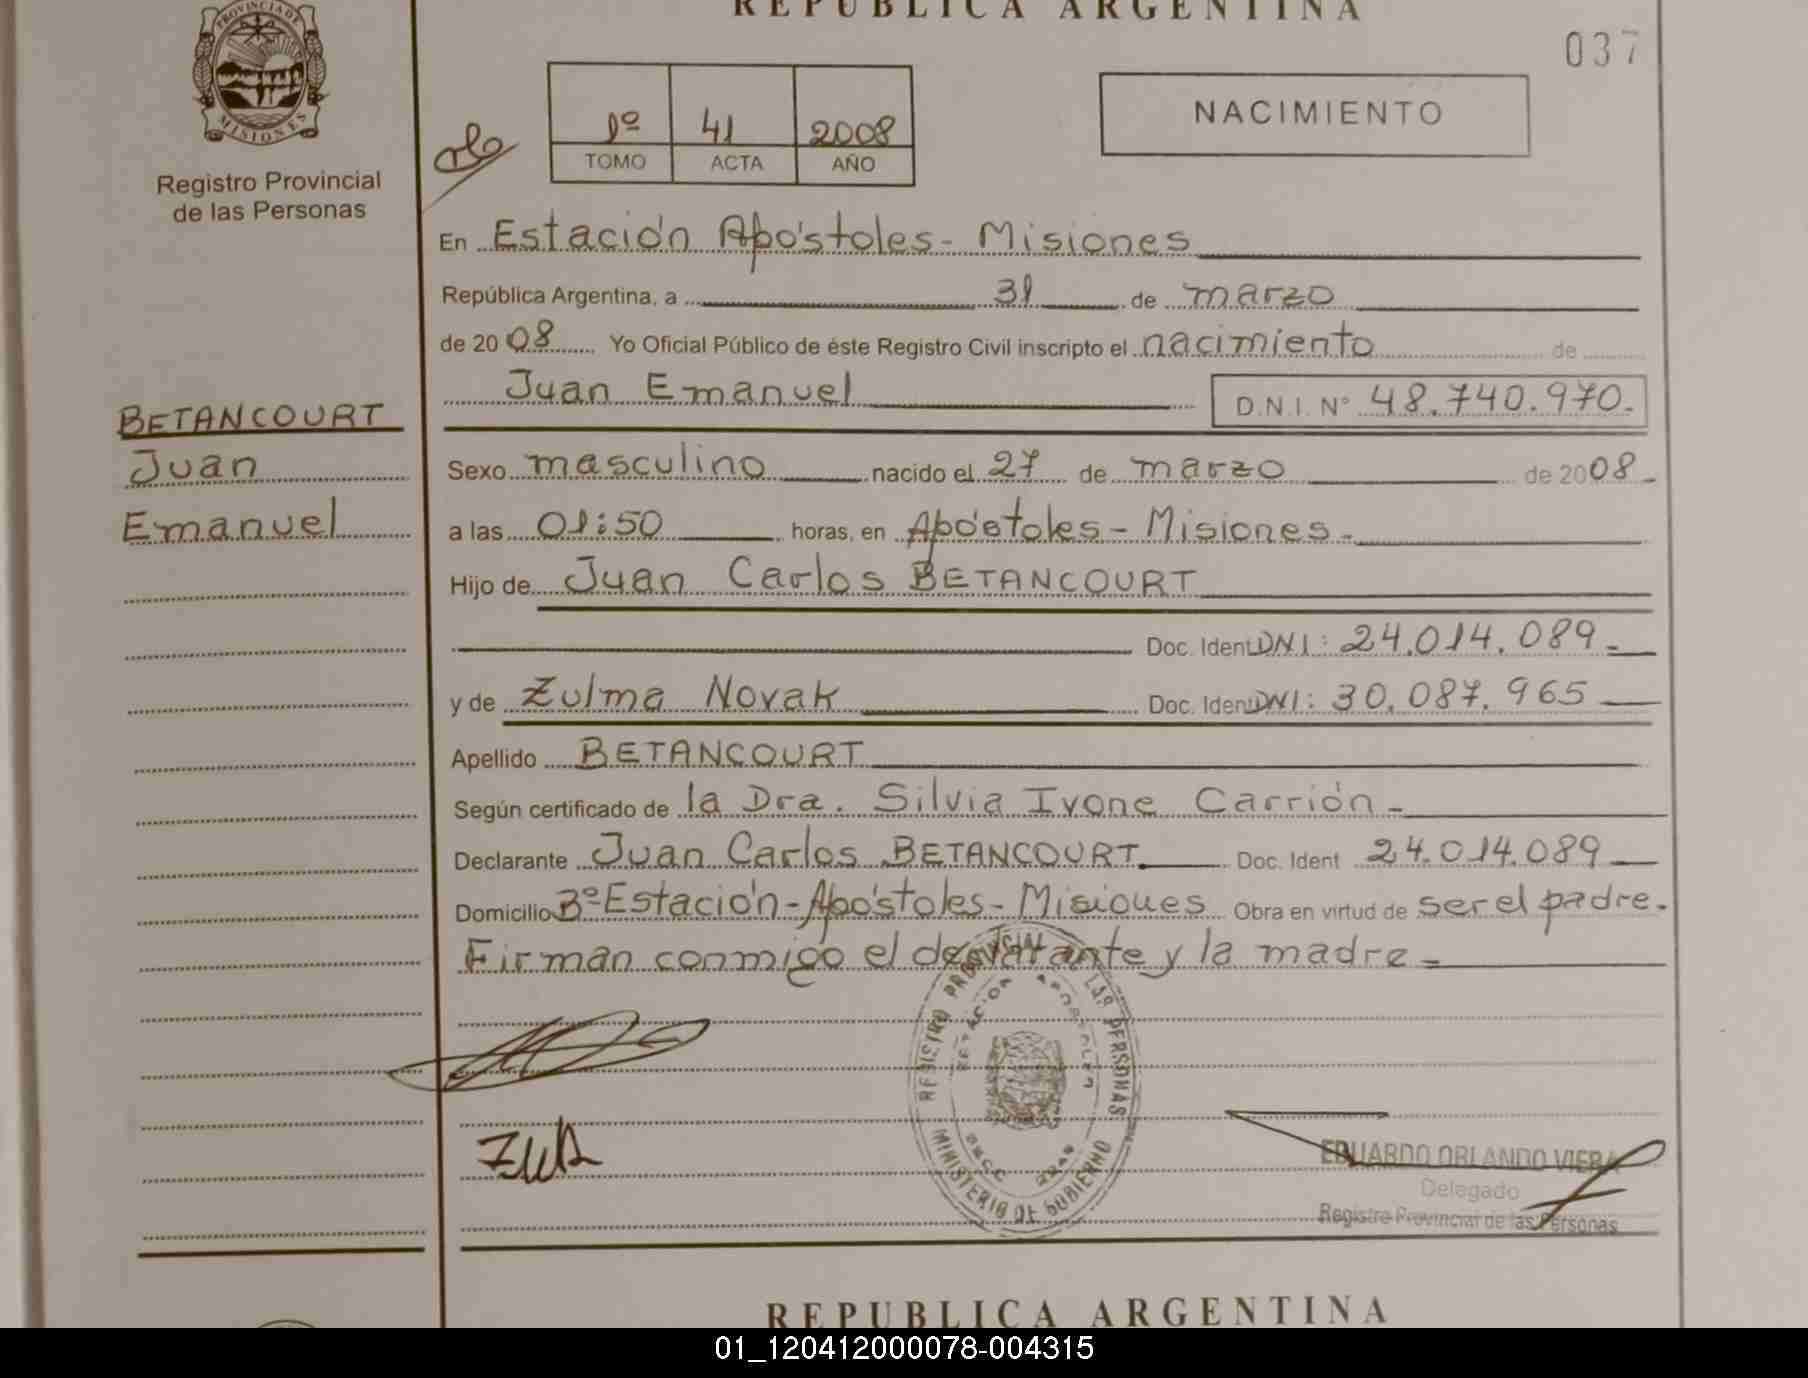 REPUBLICA ARGENTINA
037
PROVINCIA DE
MISIONES
Registro Provincial
de las Personas
1º 41 2008
TOMO ACTA AÑO
NACIMIENTO
En Estación Apóstoles - Misiones
República Argentina, a 31 de marzo
de 2008 Yo Oficial Público de éste Registro Civil inscripto el nacimiento de
Juan Emanuel D.N.I. Nº 48.740.970.
BETANCOURT
Juan
Emanuel
Sexo masculino nacido el 27 de marzo de 2008-
a las 01:50 horas, en Apóstoles - Misiones-
Hijo de Juan Carlos BETANCOURT
Doc. Ident DNI: 24.014.089-
y de Zulma Novak Doc. Ident DNI: 30.087.965
Apellido BETANCOURT
Según certificado de la Dra. Silvia Ivone Carrión-
Declarante Juan Carlos BETANCOURT. Doc. Ident 24.014.089
Domicilio Bº Estación - Apóstoles - Misiones Obra en virtud de ser el padre.
Firman conmigo el declarante y la madre-
REGISTRO PROVINCIAL LAS PERSONAS
ESTACION APOSTOLES
MINISTERIO DE GOBIERNO
EDUARDO ORLANDO VIERA
Delegado
Registro Provincial de las Personas
REPUBLICA ARGENTINA
01_120412000078-004315